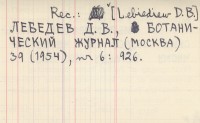 Rec.: [Lebedew D.B.]
ЛЕБЕДЕВ Д. В., БОТАНИ-
ЧЕСКИЙ ЖУРНАЛ (МОСКВА)
39 (1954), nr 6: 926.